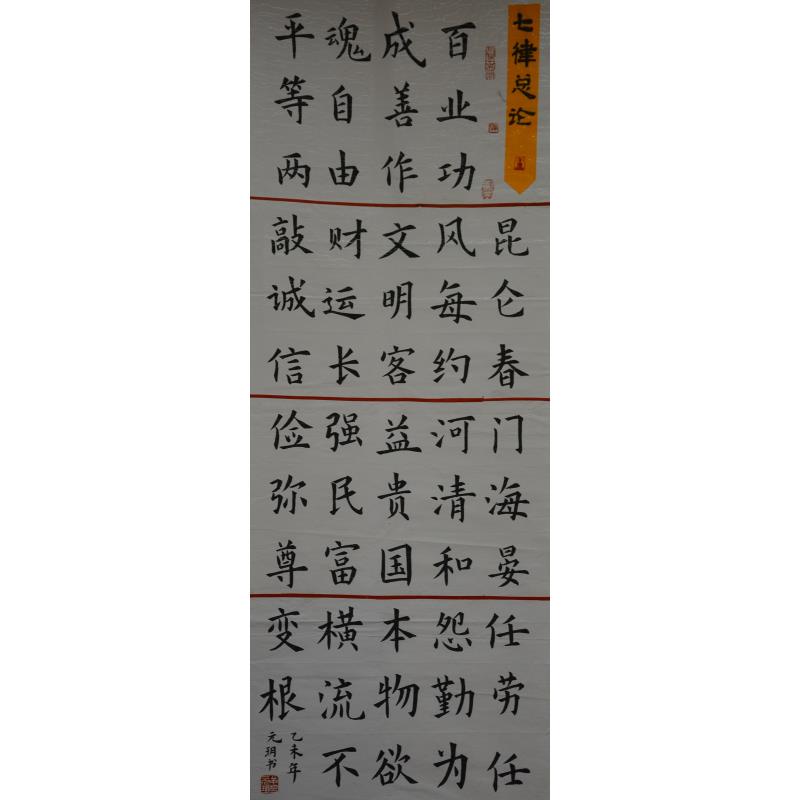 七律总论
百业功
成善作
魂自由
平等两
昆仑春
风每约
文明客
财运长
敲诚信
门海晏
河清和
益贵国
强民富
俭弥尊
任劳任
怨勤为
本物欲
横流不
变根
乙未年
元玥书